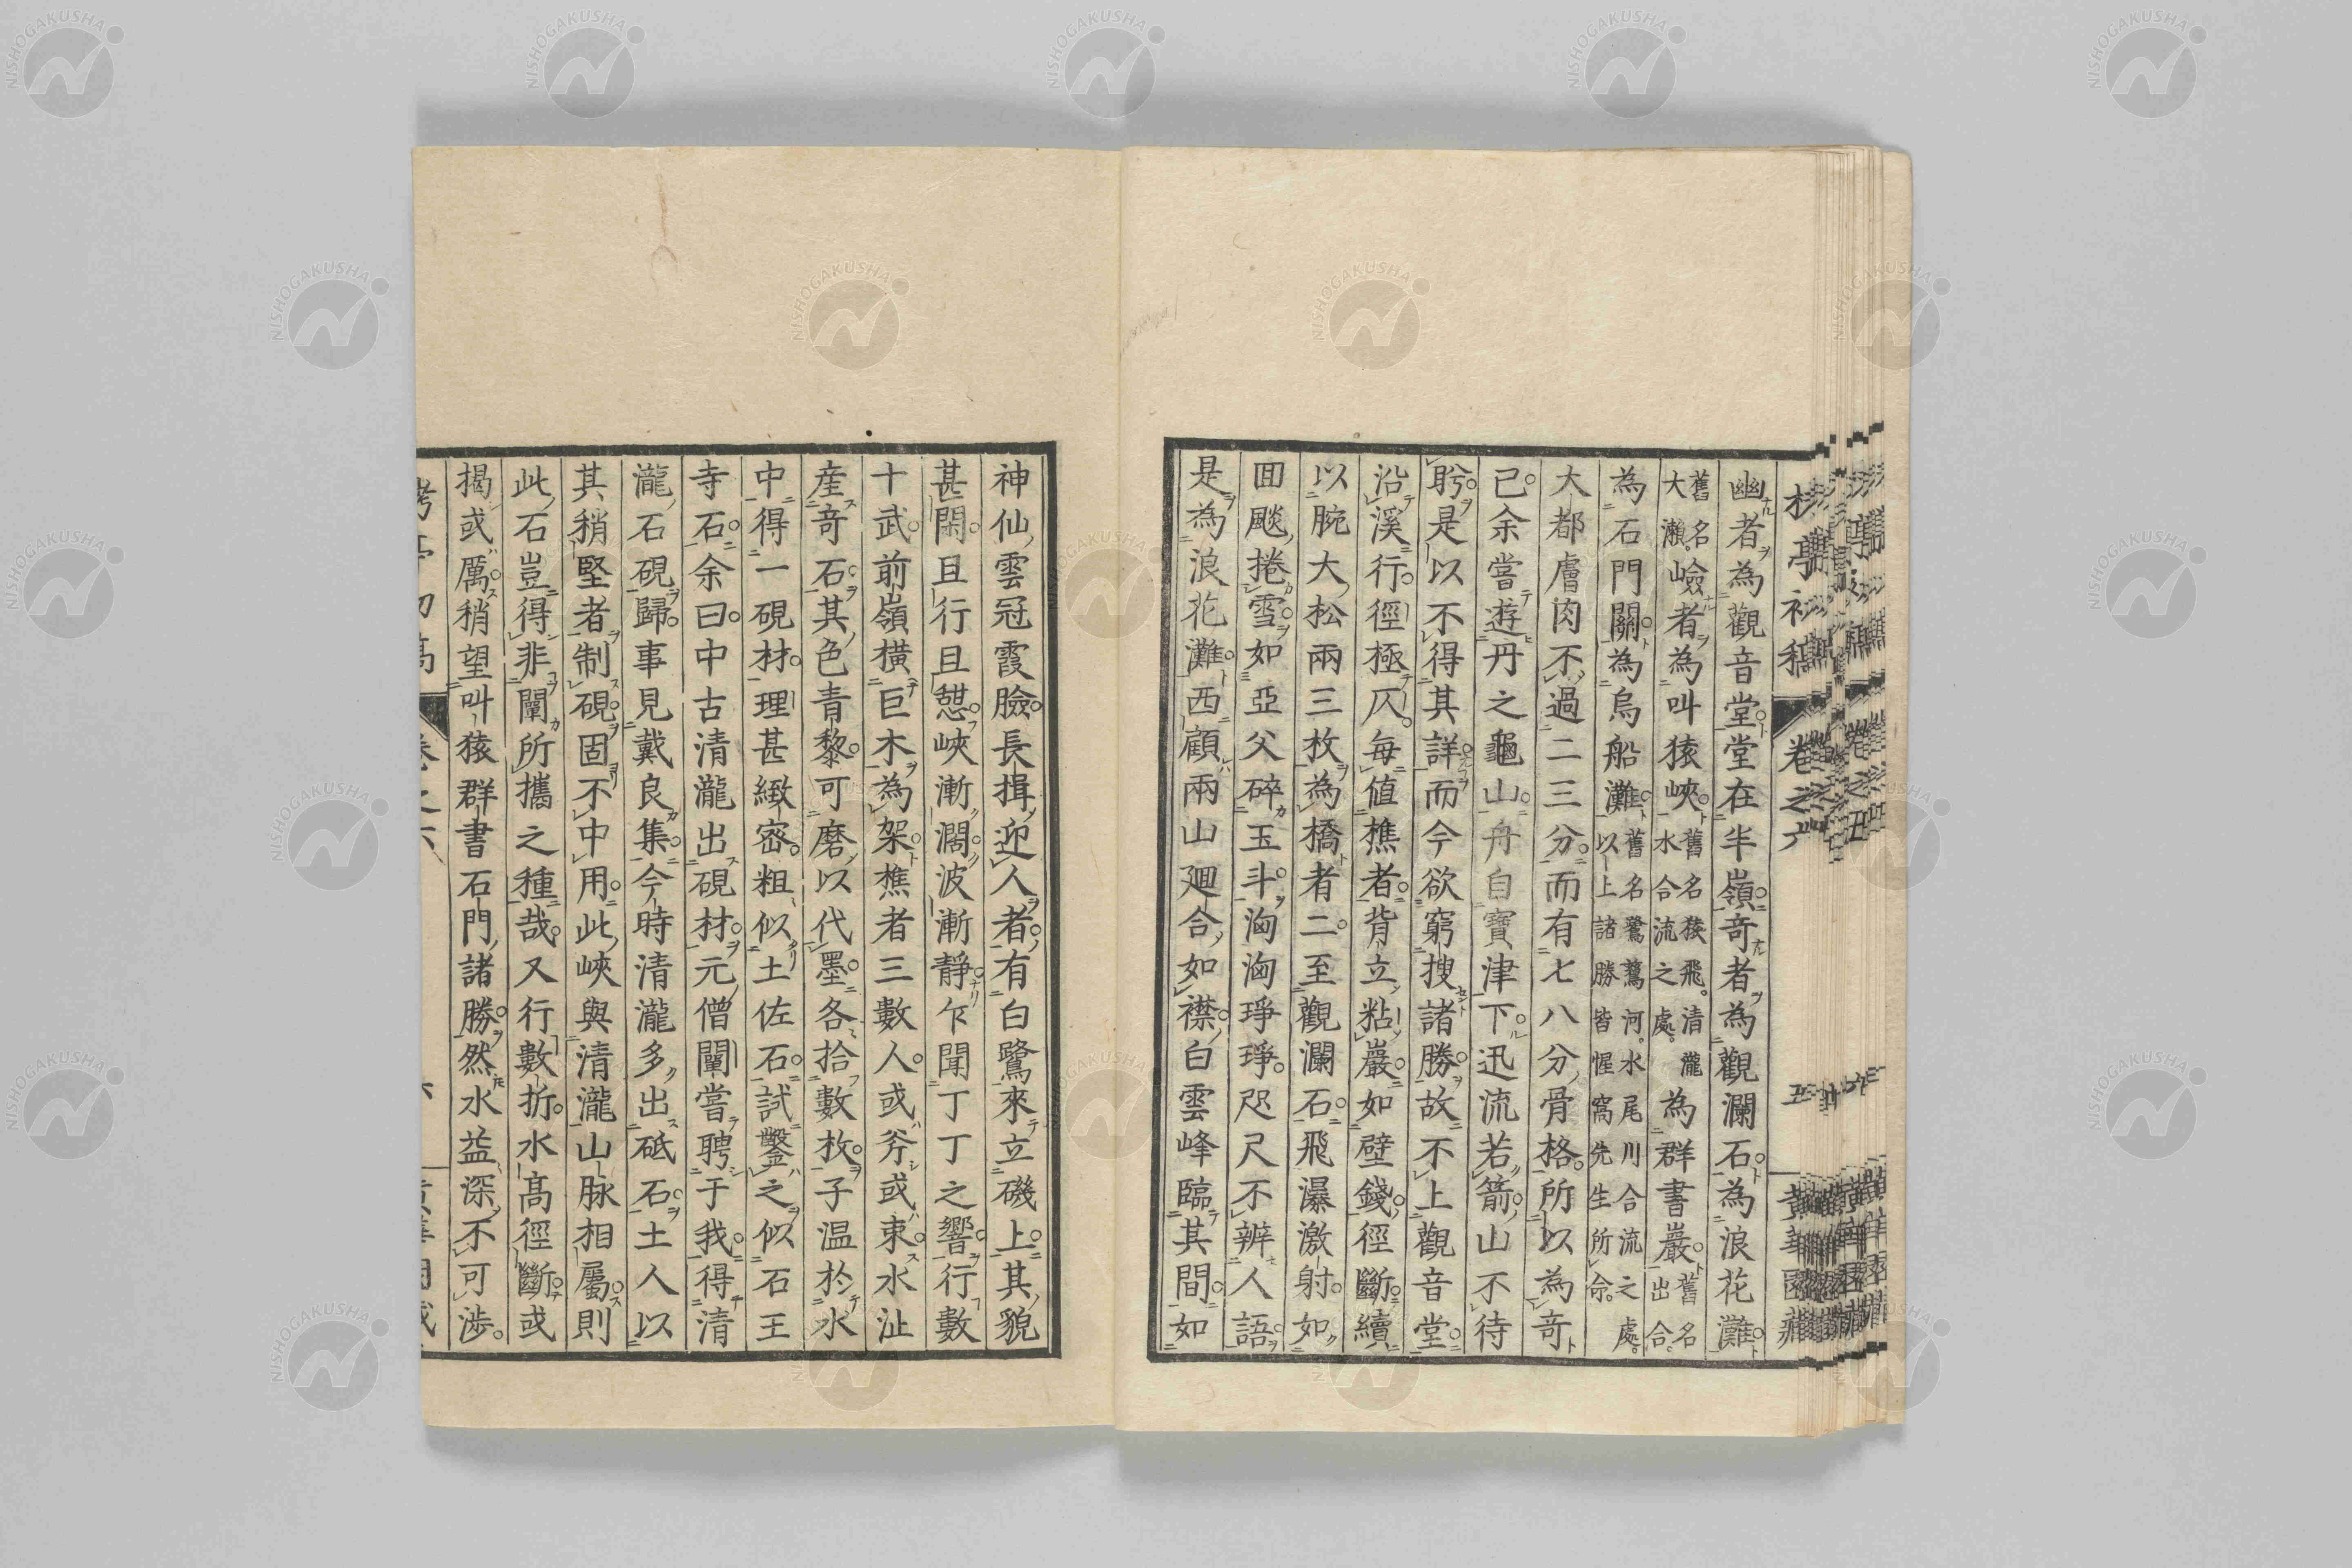 幽者為觀音堂堂在半嶺奇者為觀瀾石為浪花灘
舊名大瀨嶮者為叫猿峽舊名猴飛清瀧水合流之處為群書巖舊名出合
為石門關為烏船灘舊名鷺鷥河水尾川合流之處以上諸勝皆惺窩先生所命
大都膚肉不過二三分而有七八分骨格所以為奇
已余嘗遊丹之龜山舟自寶津下迅流若箭山不待
盻是以不得其詳而今欲窮搜諸勝故不上觀音堂
沿溪行徑極仄每值樵者背立粘巖如壁錢徑斷續
以腕大松兩三枚為橋者二至觀瀾石飛瀑激射如
回颷捲雪如亞父碎玉斗洶洶琤琤咫尺不辨人語
是為浪花灘西顧兩山迴合如襟白雲峰臨其間如
神仙雲冠霞臉長揖迎人者有白鷺來立磯上其貌
甚閑且行且憇峽漸濶波漸靜乍聞丁丁之響行數
十武前嶺橫巨木為架樵者三數人或斧或束水沚
産奇石其色青黎可磨以代墨各拾數枚子溫於水
中得一硯材理甚緻密粗似土佐石試鑿之似石王
寺石余曰中古清瀧出硯材元僧闡嘗聘于我得清
瀧石硯歸事見戴良集今時清瀧多出砥石土人以
其稍堅者制硯固不中用此峽與清瀧山脉相屬則
此石豈得非闡所攜之種哉又行數折水高徑斷或
揭或厲稍望叫猿群書石門諸勝然水益深不可涉